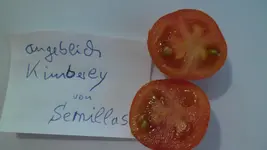 angeblich
Kimberley
von
Semillas